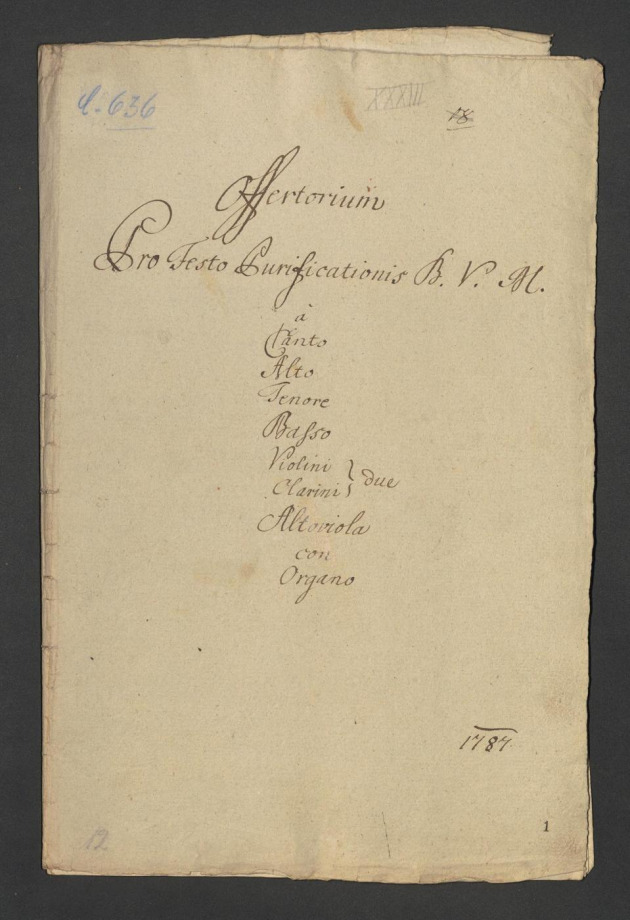 C. 636
XXXIII
18
Offertorium
Pro Festo Purificationis B. V. M.
à
Canto
Alto
Tenore
Basso
Violini
Clarini } due
Altoviola
con
Organo
1787
12
1